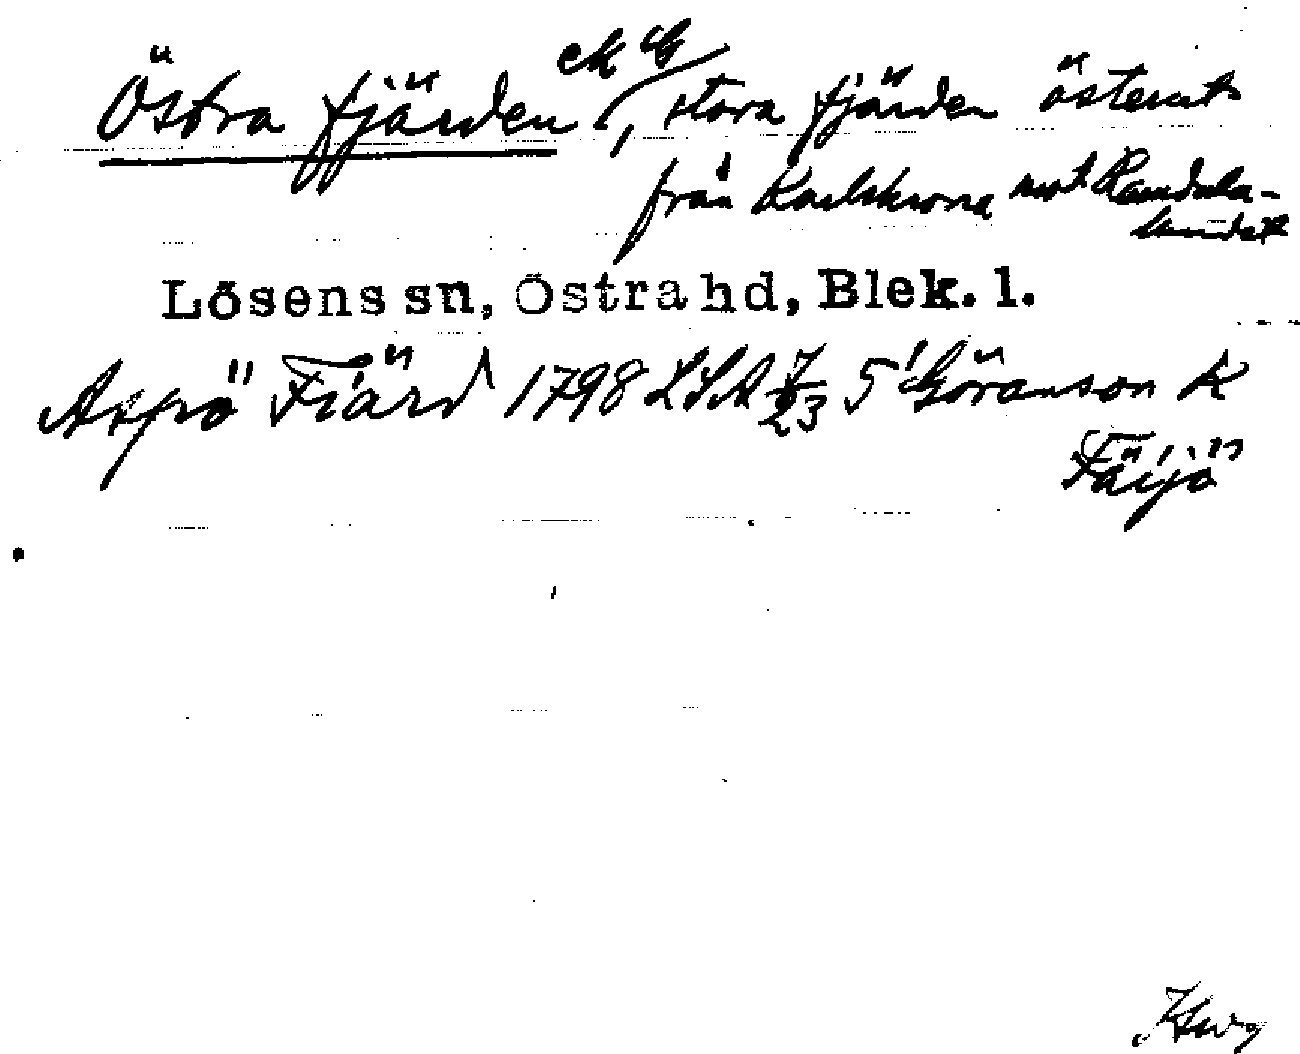 Östra fjärden ek G, stora fjärden österut
från Karlskrona mot Ramdala-
landet
Lösens sn, Östra hd, Blek. l.
Aspö Fiärd 1798 LSA 7/23 5 Göranson K
Fäijö